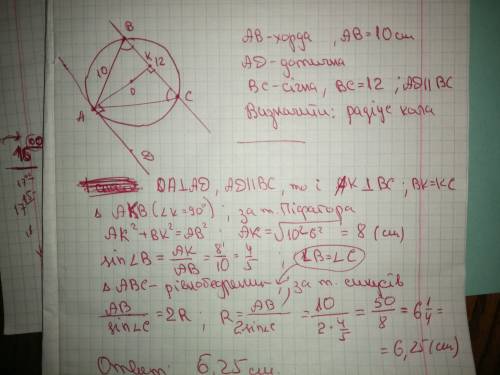 B
K
12
10
O
A
C
D
AB-хорда , AB=10см
AD-дотична
BC-січна, BC=12 ; AD||BC
Визначити: радіус кола
OA⊥AD, AD||BC, то і AK⊥BC ; BK=KC
△ AKB (∠K=90°) ; за т. Піфагора
AK²+BK²=AB² ; AK=√10²-6² = 8 (см)
sin∠B = AK/AB = 8/10 = 4/5 ; ∠B=∠C
△ABC- рівнобедрений ; за т. синусів
AB/sin∠C = 2R ; R = AB/2sin∠C = 10/2·4/5 = 50/8 = 6 1/4 =
= 6,25 (см)
Ответ: 6,25 см.